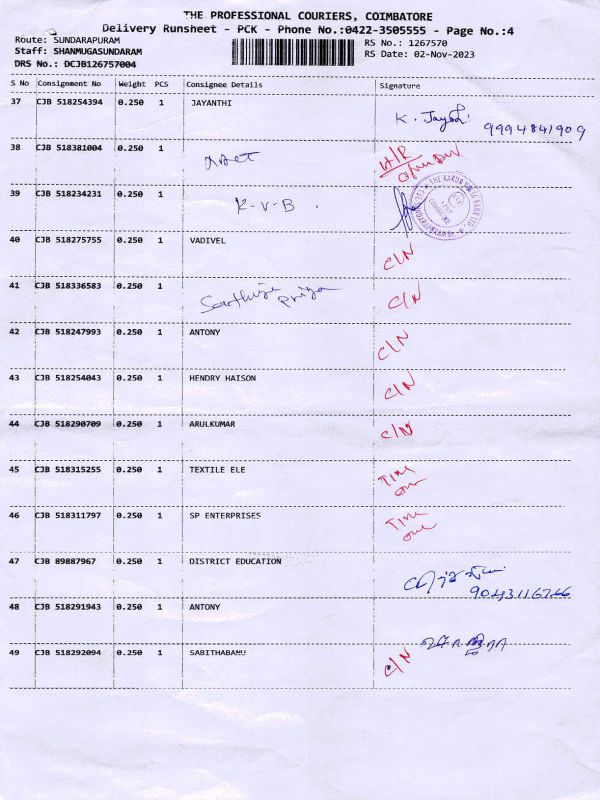 THE PROFESSIONAL COURIERS, COIMBATORE
Delivery Runsheet - PCK - Phone No.:0422-3505555 - Page No.:4
Route: SUNDARAPURAM RS No.: 1267570
Staff: SHANMUGASUNDARAM RS Date: 02-Nov-2023
DRS No.: DCJB126757004
S No Consignment No Weight PCS Consignee Details Signature
37 CJB 518254394 0.250 1 JAYANTHI K. Jayanthi 9994841909
38 CJB 518381004 0.250 1
39 CJB 518234231 0.250 1 K-V-B.
40 CJB 518275755 0.250 1 VADIVEL C/N
41 CJB 518336583 0.250 1 Priya C/N
42 CJB 518247993 0.250 1 ANTONY C/N
43 CJB 518254043 0.250 1 HENDRY HAISON C/N
44 CJB 518290709 0.250 1 ARULKUMAR C/N
45 CJB 518315255 0.250 1 TEXTILE ELE Time
46 CJB 518311797 0.250 1 SP ENTERPRISES Time
47 CJB 89887967 0.250 1 DISTRICT EDUCATION
48 CJB 518291943 0.250 1 ANTONY
49 CJB 518292094 0.250 1 SABITHABANU C/N